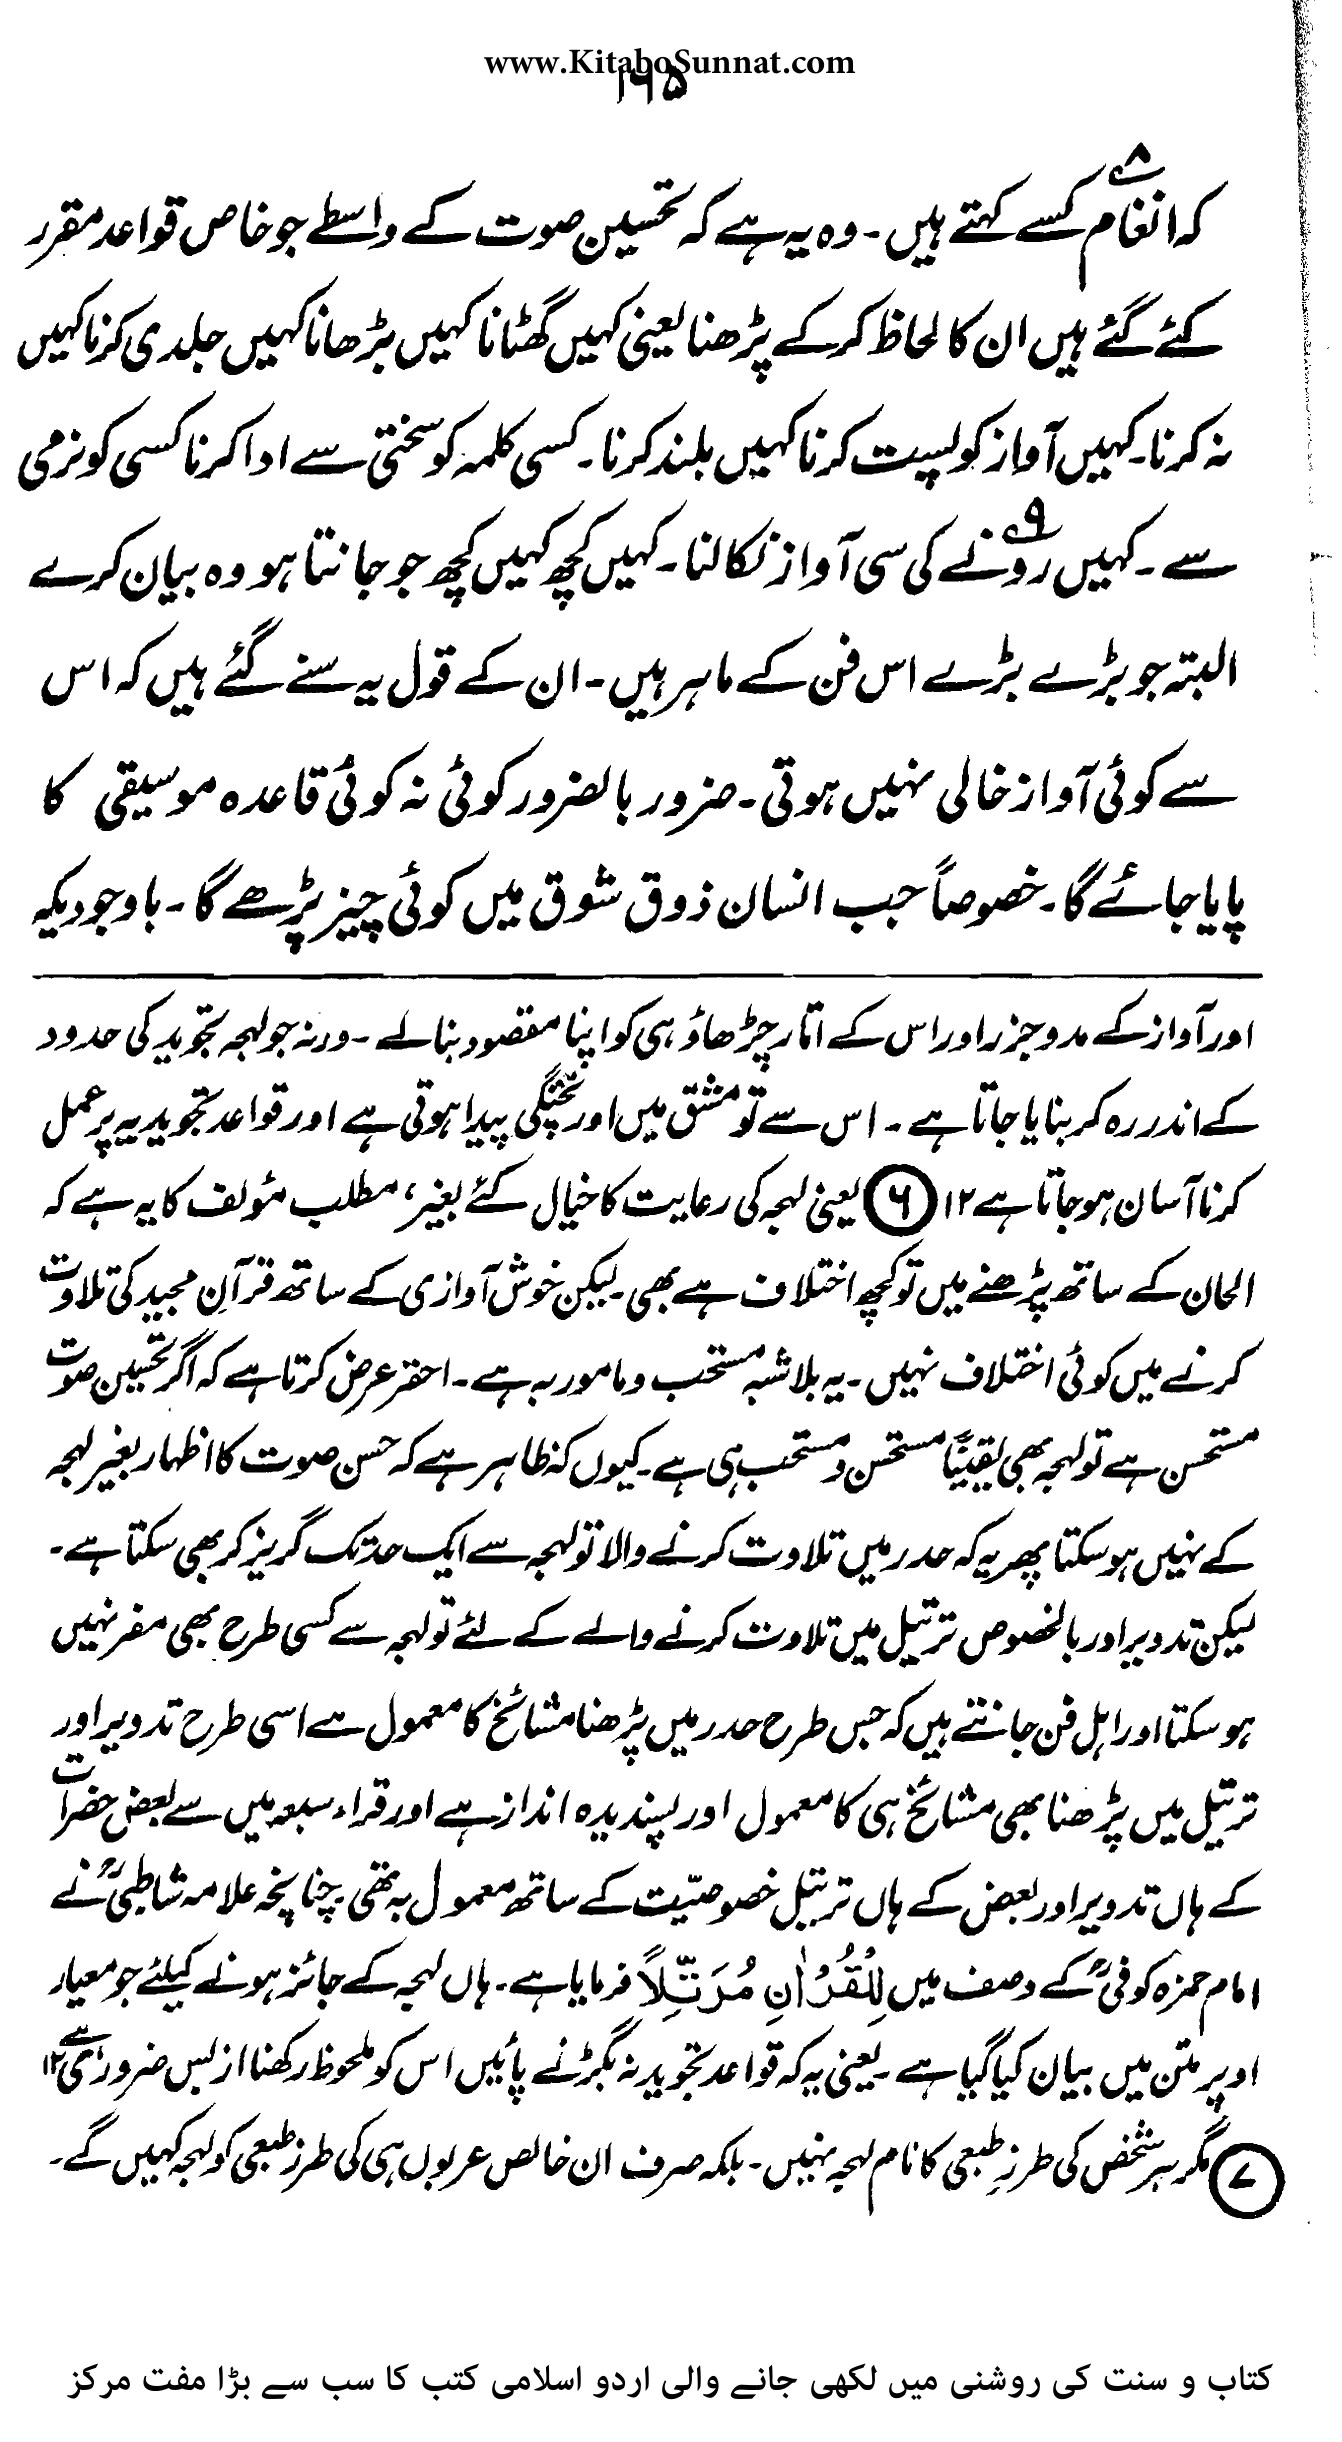 www.KitaboSunnat.com
۱۶۵
کہ انغام۸ کسے کہتے ہیں۔ وہ یہ ہے کہ تحسین صوت کے واسطے جو خاص قواعد مقرر
کئے گئے ہیں ان کا لحاظ کر کے پڑھنا یعنی کہیں گھٹانا کہیں بڑھانا کہیں جلدی کرنا کہیں
نہ کرنا۔ کہیں آواز کو پست کرنا کہیں بلند کرنا۔ کسی کلمہ کو سختی سے ادا کرنا کسی کو نرمی
سے۔ کہیں رونے۹ کی سی آواز نکالنا۔ کہیں کچھ کہیں کچھ جو جانتا ہو وہ بیان کرے
البتہ جو بڑے بڑے اس فن کے ماہر ہیں۔ ان کے قول یہ سنے گئے ہیں کہ اس
سے کوئی آواز خالی نہیں ہوتی۔ ضرور بالضرور کوئی نہ کوئی قاعدہ موسیقی کا
پایا جائے گا۔ خصوصاً جب انسان ذوق شوق میں کوئی چیز پڑھے گا۔ باوجودیکہ
اور آواز کے مدوجزر اور اس کے اتار چڑھاؤ ہی کو اپنا مقصود بنالے۔ ورنہ جو لہجہ تجوید کی حدود
کے اندر رہ کر بنایا جاتا ہے۔ اس سے تو مشق میں اور پختگی پیدا ہوتی ہے اور قواعد تجویدیہ پر عمل
کرنا آسان ہو جاتا ہے ۱۲ ⑥ یعنی لہجہ کی رعایت کا خیال کئے بغیر، مطلب مؤلف کا یہ ہے کہ
الحان کے ساتھ پڑھنے میں تو کچھ اختلاف ہے بھی۔ لیکن خوش آوازی کے ساتھ قرآنِ مجید کی تلاوت
کرنے میں کوئی اختلاف نہیں۔ یہ بلاشبہ مستحب و مامور بہ ہے۔ احقر عرض کرتا ہے کہ اگر تحسین صوت
مستحسن ہے تو لہجہ بھی یقینًا مستحسن و مستحب ہی ہے۔ کیوں کہ ظاہر ہے کہ حسن صوت کا اظہار بغیر لہجہ
کے نہیں ہو سکتا پھر یہ کہ حدر میں تلاوت کرنے والا تو لہجہ سے ایک حد تک گریز کر بھی سکتا ہے۔
لیکن تدویر اور بالخصوص ترتیل میں تلاوت کرنے والے کے لئے تو لہجہ سے کسی طرح بھی مفر نہیں
ہو سکتا اور اہل فن جانتے ہیں کہ جس طرح حدر میں پڑھنا مشائخ کا معمول ہے اسی طرح تدویر اور
ترتیل میں پڑھنا بھی مشائخ ہی کا معمول اور پسندیدہ انداز ہے اور قراء سبعہ میں سے بعض حضرات
کے ہاں تدویر اور بعض کے ہاں ترتیل خصوصیّت کے ساتھ معمول بہ تھی چنانچہ علامہ شاطبیؒ نے
امام حمزہ کوفیؒ کے وصف میں لِلْقُرْاٰنِ مُرَتِّلاً فرمایا ہے۔ ہاں لہجہ کے جائز ہونے کیلئے جو معیار
اوپر متن میں بیان کیا گیا ہے۔ یعنی یہ کہ قواعد تجوید نہ بگڑنے پائیں اس کو ملحوظ رکھنا از بس ضروری ہے ۱۲
⑦ مگر ہر شخص کی طرزِ طبعی کا نام لہجہ نہیں۔ بلکہ صرف ان خالص عربوں ہی کی طرز طبعی کو لہجہ کہیں گے۔
کتاب و سنت کی روشنی میں لکھی جانے والی اردو اسلامی کتب کا سب سے بڑا مفت مرکز